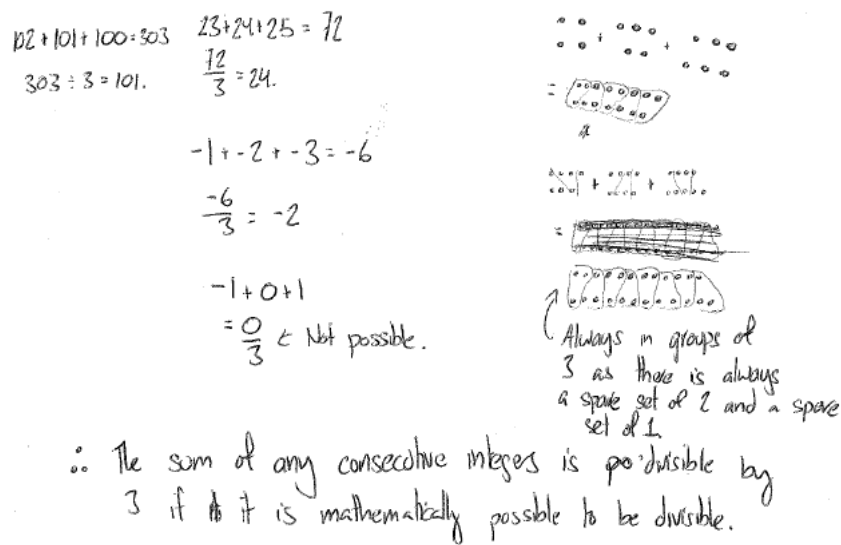 102+101+100=303
303÷3=101.
23+24+25=72
72/3=24.
-1+-2+-3=-6
-6/3 = -2
-1+0+1
= 0/3 ← Not possible.
Always in groups of
3 as there is always
a spare set of 2 and a spare
set of 1.
∴ The sum of any consecutive integers is divisible by
3 if it is mathematically possible to be divisible.